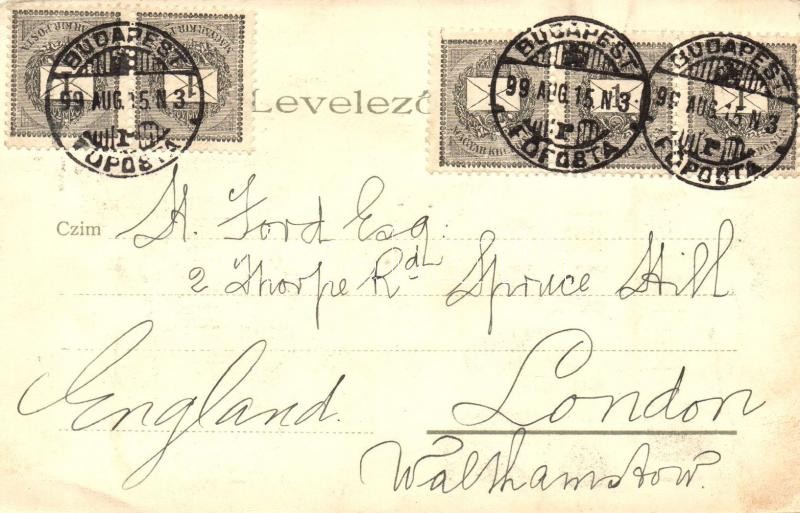 BUDAPEST
99 AUG. 15 N 3
FŐPOSTA
BUDAPEST
99 AUG. 15 N 3
FŐPOSTA
BUDAPEST
99 AUG. 15 N 3
FŐPOSTA
MAGYAR KIR. POSTA
1
1
1
1
Levelező
Czim
H. Ford Esq:
2 Thorpe Rd. Spruce Hill
England.
London
Walthamstow.